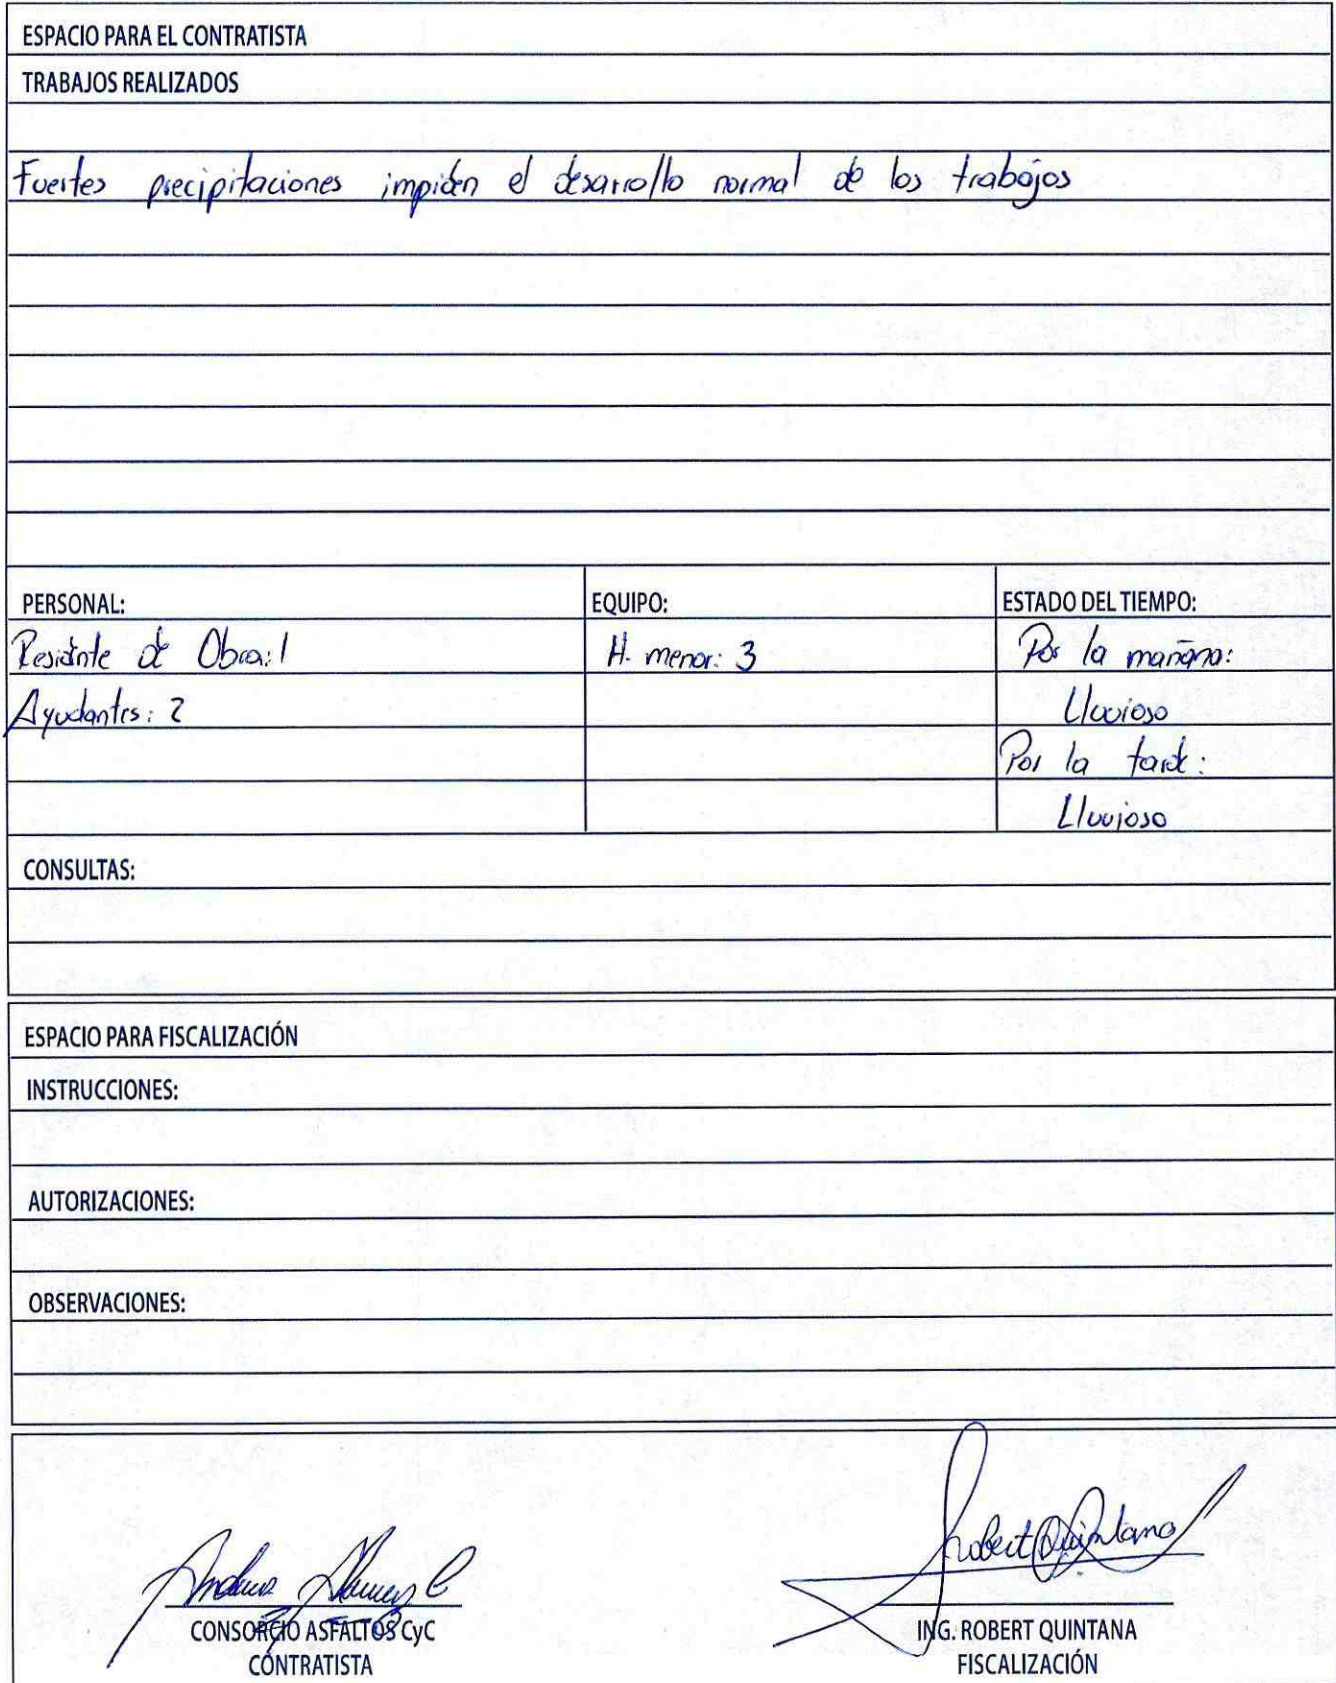 ESPACIO PARA EL CONTRATISTA
TRABAJOS REALIZADOS
Fuertes precipitaciones impiden el desarrollo normal de los trabajos
PERSONAL: EQUIPO: ESTADO DEL TIEMPO:
Residente de Obra: 1 H. menor: 3 Por la mañana:
Ayudantes: 2 Lluvioso
Por la tarde:
Lluvioso
CONSULTAS:
ESPACIO PARA FISCALIZACIÓN
INSTRUCCIONES:
AUTORIZACIONES:
OBSERVACIONES:
Robert Quintana
CONSORCIO ASFALTOS CyC ING. ROBERT QUINTANA
CONTRATISTA FISCALIZACIÓN